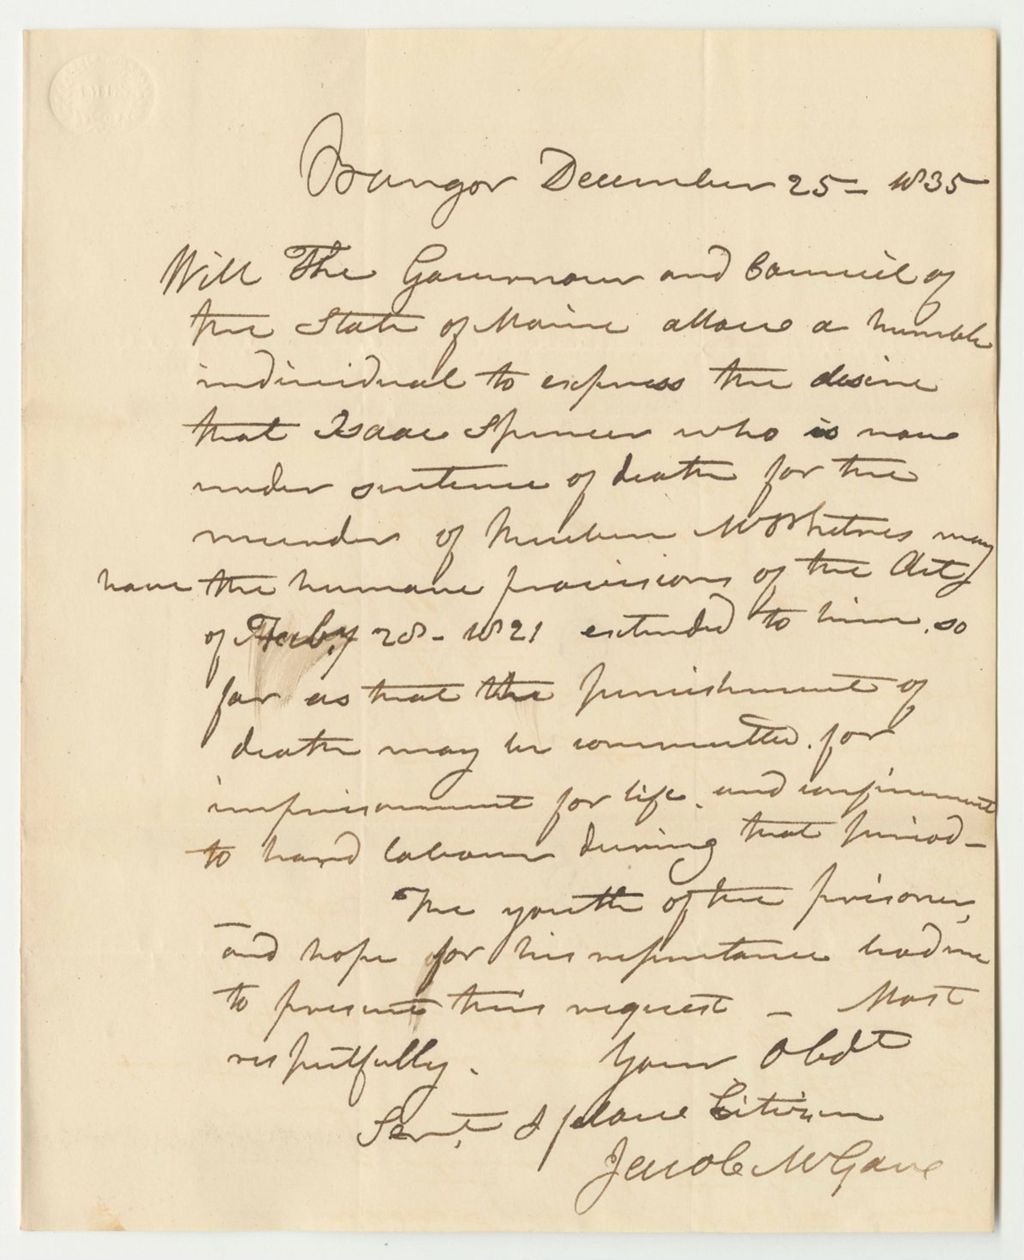 Bangor December 25 - 1835
Will The Governour and Council of
the State of Maine allow a humble
individual to express the desire
that Isaac Spencer who is now
under sentence of death for the
murder of Reuben McPhetres may
have the humane provisions of the Act
of Feby 28 - 1821 extended to him, so
far as that the punishment of
death may be commuted for
imprisonment for life and confinement
to hard labour during that period -
The youth of the prisoner,
and hope for his repentance lead me
to present this request - Most
respectfully. Your Obdt
Servt & fellow Citizen
Jacob McGaw